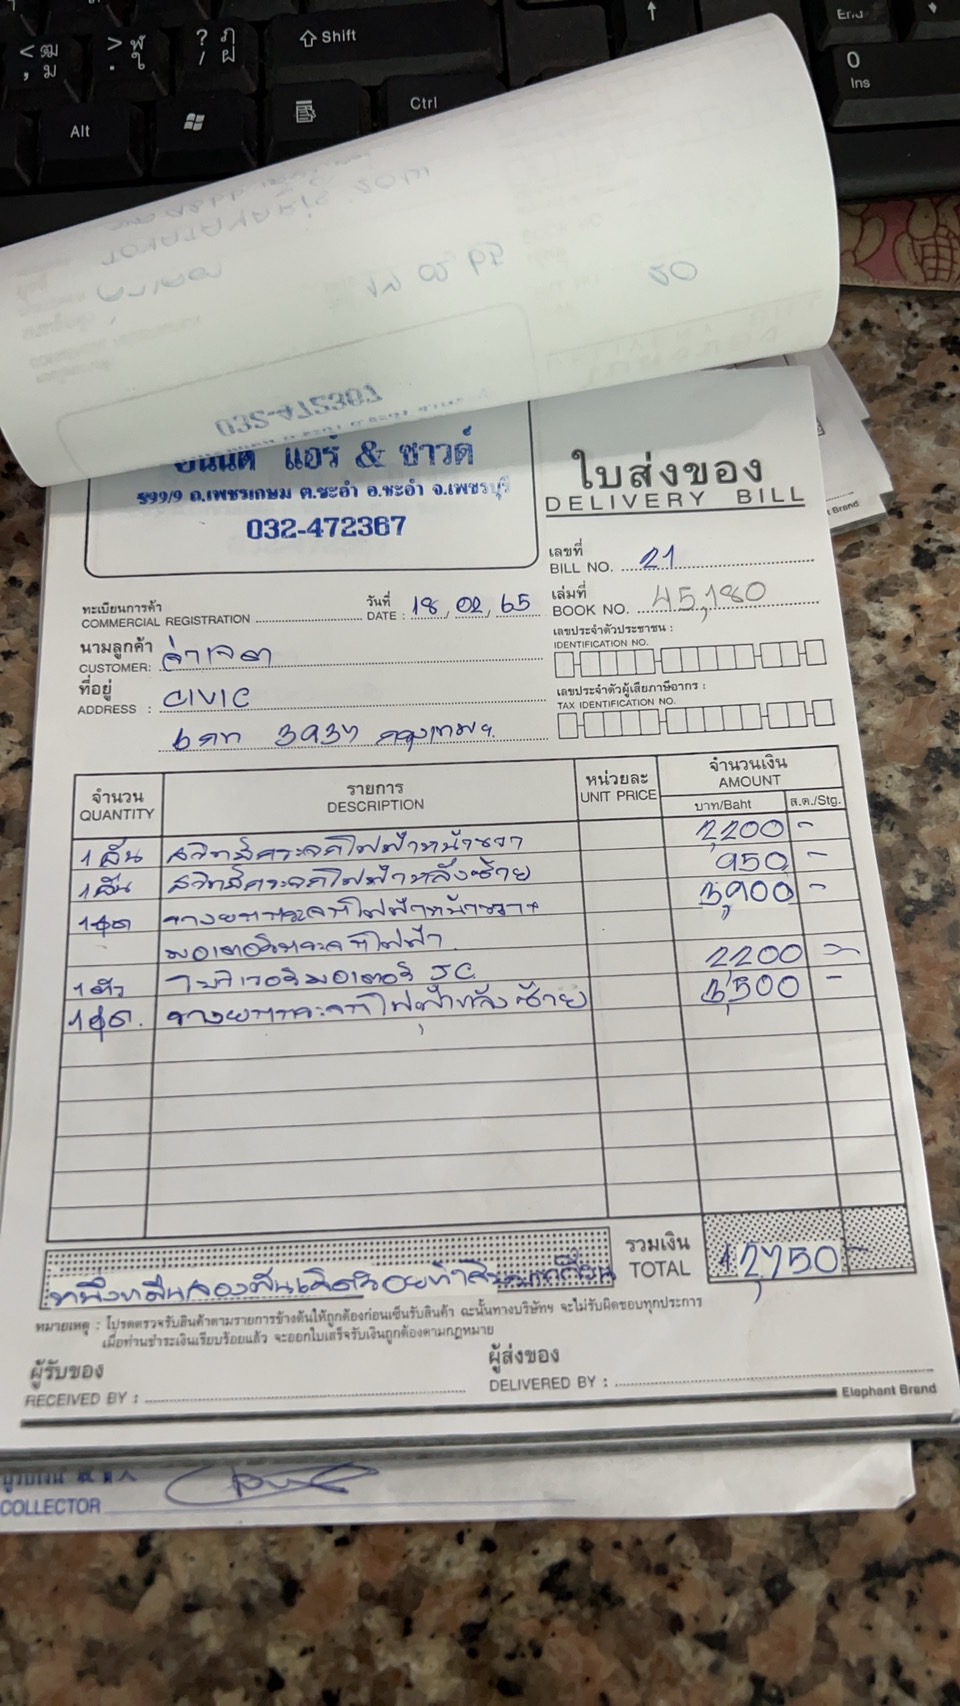 < ฒ , ม
> ฬ . ใ
? ฦ / ฝ
Shift
End
0 Ins
Alt
Ctrl
แอร์ & ซาวด์
599/9 ถ.เพชรเกษม ต.ชะอำ อ.ชะอำ จ.เพชรบุรี
032-472367
ใบส่งของ
DELIVERY BILL
เลขที่
BILL NO. 21
ทะเบียนการค้า
COMMERCIAL REGISTRATION
วันที่
DATE : 18, 02, 65
เล่มที่
BOOK NO. 45,180
นามลูกค้า
CUSTOMER:
เลขประจำตัวประชาชน :
IDENTIFICATION NO.
ที่อยู่
ADDRESS : CIVIC
เลขประจำตัวผู้เสียภาษีอากร :
TAX IDENTIFICATION NO.
กรุงเทพฯ
จำนวน QUANTITY
รายการ DESCRIPTION
หน่วยละ UNIT PRICE
จำนวนเงิน AMOUNT
บาท/Baht ส.ต./Stg.
1 อัน สวิทส์กระจกไฟฟ้าหน้าขวา 2,200 -
1 อัน สวิทส์กระจกไฟฟ้าหลังซ้าย 950 -
1 ชุด รางยกกระจกไฟฟ้าหน้าขวา+ 3,900 -
มอเตอร์กระจกไฟฟ้า
1 ตัว มอเตอร์ 2200 -
1 ชุด. รางยกกระจกไฟฟ้าหลังซ้าย 3,500 -
หนึ่งหมื่นสองพันเจ็ดร้อยห้าสิบบาทถ้วน
รวมเงิน
TOTAL 12,750 -
หมายเหตุ : โปรดตรวจรับสินค้าตามรายการข้างต้นให้ถูกต้องก่อนเซ็นรับสินค้า ฉะนั้นทางบริษัทฯ จะไม่รับผิดชอบทุกประการ
เมื่อท่านชำระเงินเรียบร้อยแล้ว จะออกใบเสร็จรับเงินถูกต้องตามกฎหมาย
ผู้รับของ
RECEIVED BY :
ผู้ส่งของ
DELIVERED BY :
Elephant Brand
COLLECTOR